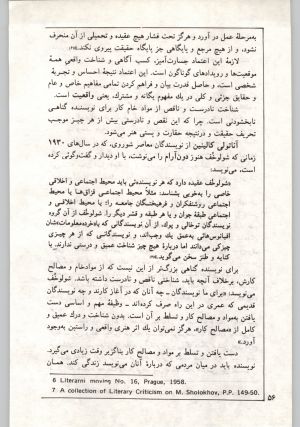 به‌مرحلهٔ عمل در آورد و هرگز تحت فشار هیچ عقیده و تحمیلی از آن منحرف
نشود، و از هیچ مرجع و پایگاهی جز پایگاه حقیقت پیروی نکند.
لازمهٔ این اعتماد جسارت‌آمیز، کسب آگاهی و شناخت واقعی همهٔ
موقعیت‌ها و رویدادهای گوناگون است. این اعتماد نتیجهٔ احساس و تجربهٔ
شخصی است، و حاصل قدرت بیان و فراهم کردن تمامی مفاهیم خاص و عام
و حقایق جزئی و کلی در یك مفهوم یگانه و مشترك، یعنی واقعیت است.
شناخت نادرست و ناقص از مواد خام کار برای نویسنده گناهی
نابخشودنی است. چرا که این نقص و نادرستی بیش از هر چیز موجب
تحریف حقیقت و درنتیجه حقارت و پستی هنر می‌شود.
آناتولی کالینین از نویسندگان معاصر شوروی، که در سال‌های ۱۹۳۰
زمانی که شولوخف هنوز دن‌آرام را می‌نوشت، با او دیدار و گفت‌وگوئی کرده
است، می‌نویسد:
شولوخف عقیده دارد که هر نویسنده‌ئی باید محیط اجتماعی و اخلاقی
خاصی را به‌خوبی بشناسد: مثلاً محیط اجتماعی قزاق‌ها یا محیط
اجتماعی روشنفکران و فرهیختگان جامعه را؛ یا محیط اخلاقی و
اجتماعی طبقهٔ جوان و یا هر طبقه و قشر دیگر را. شولوخف از آن گروه
نویسندگان توخالی و پوك، از آن نویسندگانی که
اقیانوس‌هائی به‌عمق یك وجب‌اند، و نویسندگانی که از هر چیزی
چیزکی می‌دانند اما دربارهٔ هیچ چیز شناخت عمیق و درستی ندارند، با
کنایه و طنز سخن می‌گوید.
برای نویسنده گناهی بزرگ‌تر از این نیست که از موادخام و مصالح
کارش، برخلاف آنچه باید، شناختی ناقص و نادرست داشته باشد. شولوخف
می‌نویسد: «برای ما نویسندگان – چه آنان که در آغاز کارند و چه نویسندگان
قدیمی که عمری در این راه صرف کرده‌اند – وظیفهٔ مهم و اساسی دست
یافتن به‌مواد و مصالح کار و تسلط بر آن است. بدون شناخت و درك عمیق و
کامل از «مصالح کار»، هرگز نمی‌توان یك اثر هنری واقعی و راستین به‌وجود
آورد.»
دست یافتن و تسلط بر مواد و مصالح کار ناگزیر وقت زیادی می‌گیرد.
نویسنده باید در میان مردمی که دربارهٔ آنان می‌نویسد زندگی کند. همان
6 Literarni moving No. 16, Prague, 1958.
7 A collection of Literary Criticism on M. Sholokhov, P.P. 149-50.
۵۶